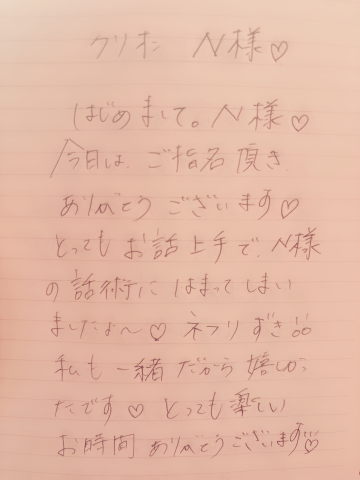 クリオネ N様♡
はじめまして。N様♡
今日は、ご指名頂き
ありがとうございます♡
とってもお話上手で、N様
の話術にはまってしまい
ましたよ〜♡ ネフリずき
私も一緒だから嬉しかっ
たです♡ とっても楽しい
お時間ありがとうございます♡